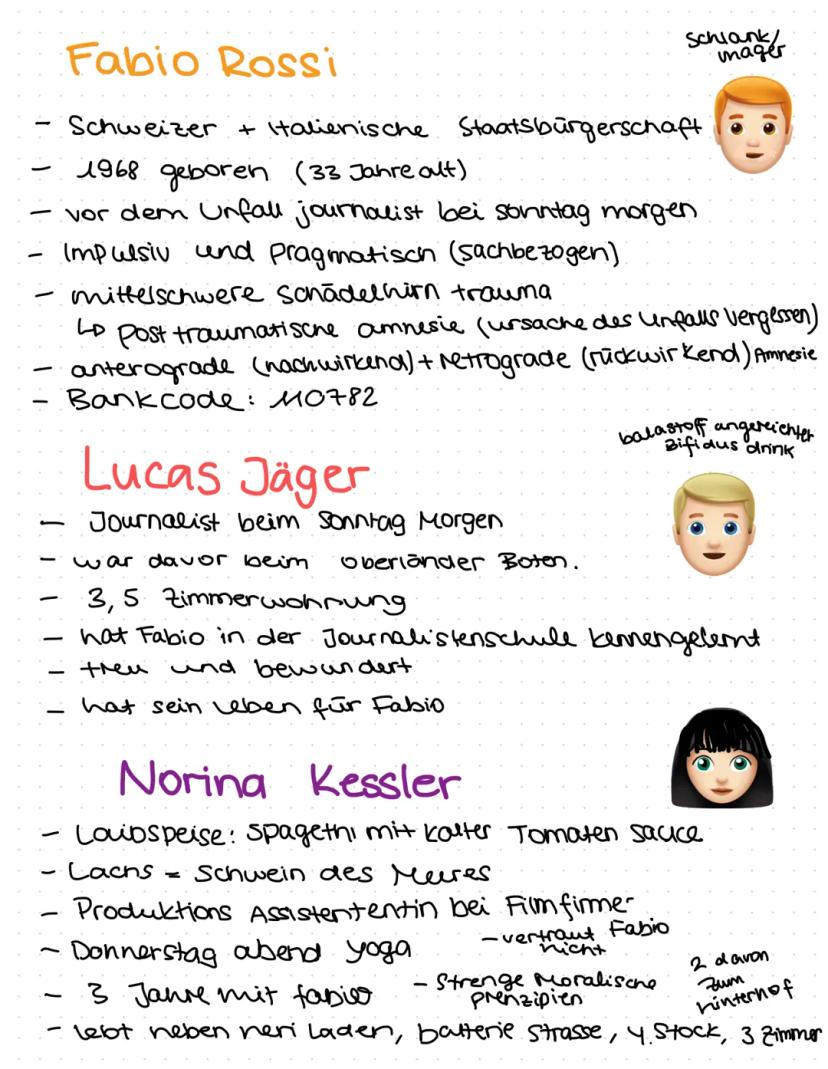 schlank/
mager
Fabio Rossi
- Schweizer + Italienische Staatsbürgerschaft
- 1968 geboren (33 Jahre alt)
- vor dem Unfall journalist bei sonntag morgen
- Impulsiv und Pragmatisch (sachbezogen)
- mittelschwere schädelhirn trauma
↳ post traumatische amnesie (ursache des Unfalls vergessen)
- anterograde (nachwirkend) + retrograde (rückwirkend) Amnesie
- Bankcode: 110782
balastoff angereichter
Bifidus drink
Lucas Jäger
- Journalist beim Sonntag Morgen
- war davor beim oberländer Boten.
- 3,5 Zimmerwohnung
- hat Fabio in der Journalistenschule kennengelernt
- treu und bewundert
- hat sein leben für Fabio
Norina Kessler
- Laibspeise: spagethi mit kalter Tomaten sauce
- Lachs = Schwein des Meeres
- Produktions Assistententin bei Filmfirmer
- Donnerstag abend yoga
- vertraut Fabio
nicht
- 3 Jahre mit fabio
- Strenge Moralische
prenzipien
2 davon
zum
hinterhof
- lebt neben neri laden, batterie strasse, 4. Stock, 3 Zimmer